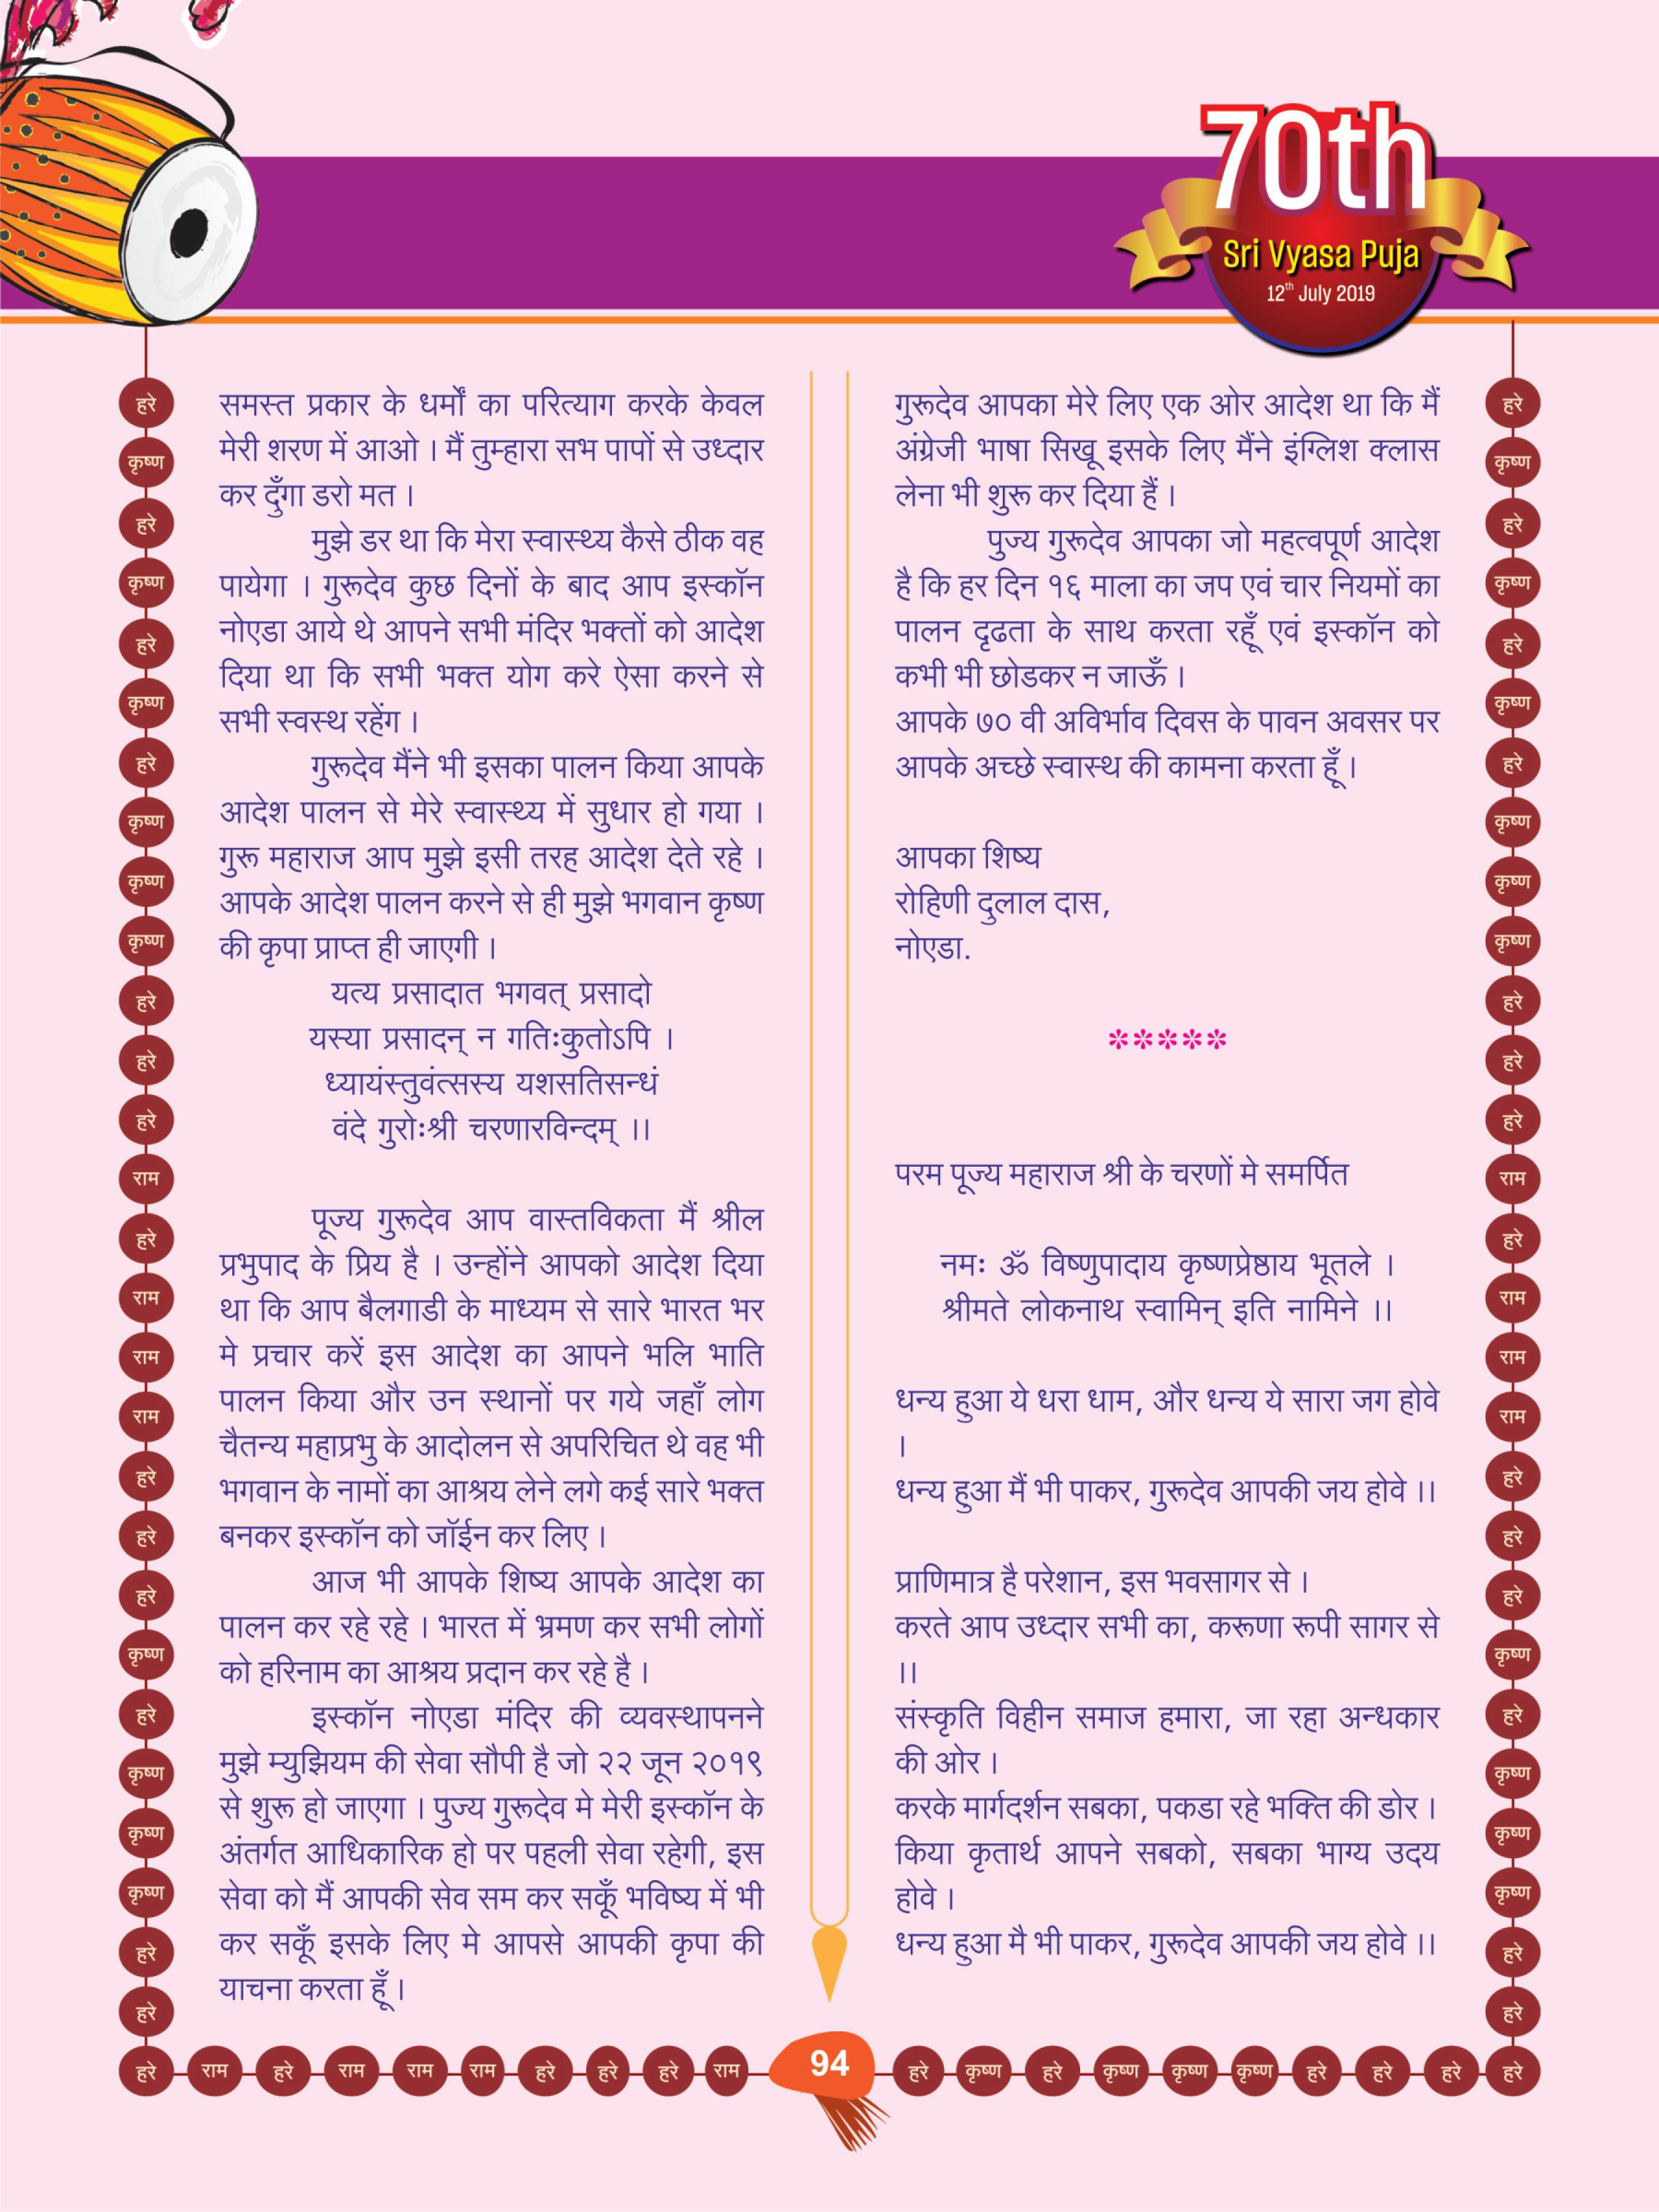 70th
Sri Vyasa Puja
12th July 2019
समस्त प्रकार के धर्मों का परित्याग करके केवल
मेरी शरण में आओ । मैं तुम्हारा सभ पापों से उध्दार
कर दुँगा डरो मत ।
मुझे डर था कि मेरा स्वास्थ्य कैसे ठीक वह
पायेगा । गुरूदेव कुछ दिनों के बाद आप इस्कॉन
नोएडा आये थे आपने सभी मंदिर भक्तों को आदेश
दिया था कि सभी भक्त योग करे ऐसा करने से
सभी स्वस्थ रहेंग ।
गुरूदेव मैंने भी इसका पालन किया आपके
आदेश पालन से मेरे स्वास्थ्य में सुधार हो गया ।
गुरू महाराज आप मुझे इसी तरह आदेश देते रहे ।
आपके आदेश पालन करने से ही मुझे भगवान कृष्ण
की कृपा प्राप्त ही जाएगी ।
यत्य प्रसादात भगवत् प्रसादो
यस्या प्रसादन् न गतिःकुतोऽपि ।
ध्यायंस्तुवंत्सस्य यशसतिसन्धं
वंदे गुरोःश्री चरणारविन्दम् ।।
पूज्य गुरूदेव आप वास्तविकता मैं श्रील
प्रभुपाद के प्रिय है । उन्होंने आपको आदेश दिया
था कि आप बैलगाडी के माध्यम से सारे भारत भर
मे प्रचार करें इस आदेश का आपने भलि भाति
पालन किया और उन स्थानों पर गये जहाँ लोग
चैतन्य महाप्रभु के आदोलन से अपरिचित थे वह भी
भगवान के नामों का आश्रय लेने लगे कई सारे भक्त
बनकर इस्कॉन को जॉईन कर लिए ।
आज भी आपके शिष्य आपके आदेश का
पालन कर रहे रहे । भारत में भ्रमण कर सभी लोगों
को हरिनाम का आश्रय प्रदान कर रहे है ।
इस्कॉन नोएडा मंदिर की व्यवस्थापनने
मुझे म्युझियम की सेवा सौपी है जो २२ जून २०१९
से शुरू हो जाएगा । पुज्य गुरूदेव मे मेरी इस्कॉन के
अंतर्गत आधिकारिक हो पर पहली सेवा रहेगी, इस
सेवा को मैं आपकी सेव सम कर सकूँ भविष्य में भी
कर सकूँ इसके लिए मे आपसे आपकी कृपा की
याचना करता हूँ ।
गुरूदेव आपका मेरे लिए एक ओर आदेश था कि मैं
अंग्रेजी भाषा सिखू इसके लिए मैंने इंग्लिश क्लास
लेना भी शुरू कर दिया हैं ।
पुज्य गुरूदेव आपका जो महत्वपूर्ण आदेश
है कि हर दिन १६ माला का जप एवं चार नियमों का
पालन दृढता के साथ करता रहूँ एवं इस्कॉन को
कभी भी छोडकर न जाऊँ ।
आपके ७० वी अविर्भाव दिवस के पावन अवसर पर
आपके अच्छे स्वास्थ की कामना करता हूँ ।
आपका शिष्य
रोहिणी दुलाल दास,
नोएडा.
*****
परम पूज्य महाराज श्री के चरणों मे समर्पित
नमः ॐ विष्णुपादाय कृष्णप्रेष्ठाय भूतले ।
श्रीमते लोकनाथ स्वामिन् इति नामिने ।।
धन्य हुआ ये धरा धाम, और धन्य ये सारा जग होवे
।
धन्य हुआ मैं भी पाकर, गुरूदेव आपकी जय होवे ।।
प्राणिमात्र है परेशान, इस भवसागर से ।
करते आप उध्दार सभी का, करूणा रूपी सागर से
।।
संस्कृति विहीन समाज हमारा, जा रहा अन्धकार
की ओर ।
करके मार्गदर्शन सबका, पकडा रहे भक्ति की डोर ।
किया कृतार्थ आपने सबको, सबका भाग्य उदय
होवे ।
धन्य हुआ मै भी पाकर, गुरूदेव आपकी जय होवे ।।
हरे
कृष्ण
हरे
कृष्ण
हरे
कृष्ण
हरे
कृष्ण
कृष्ण
कृष्ण
हरे
हरे
हरे
राम
हरे
राम
राम
राम
हरे
हरे
हरे
कृष्ण
हरे
कृष्ण
कृष्ण
कृष्ण
हरे
हरे
हरे
कृष्ण
हरे
कृष्ण
हरे
कृष्ण
हरे
कृष्ण
कृष्ण
कृष्ण
हरे
हरे
हरे
राम
हरे
राम
राम
राम
हरे
हरे
हरे
कृष्ण
हरे
कृष्ण
कृष्ण
कृष्ण
हरे
हरे
हरे राम हरे राम राम राम हरे हरे हरे राम 94 हरे कृष्ण हरे कृष्ण कृष्ण कृष्ण हरे हरे हरे हरे